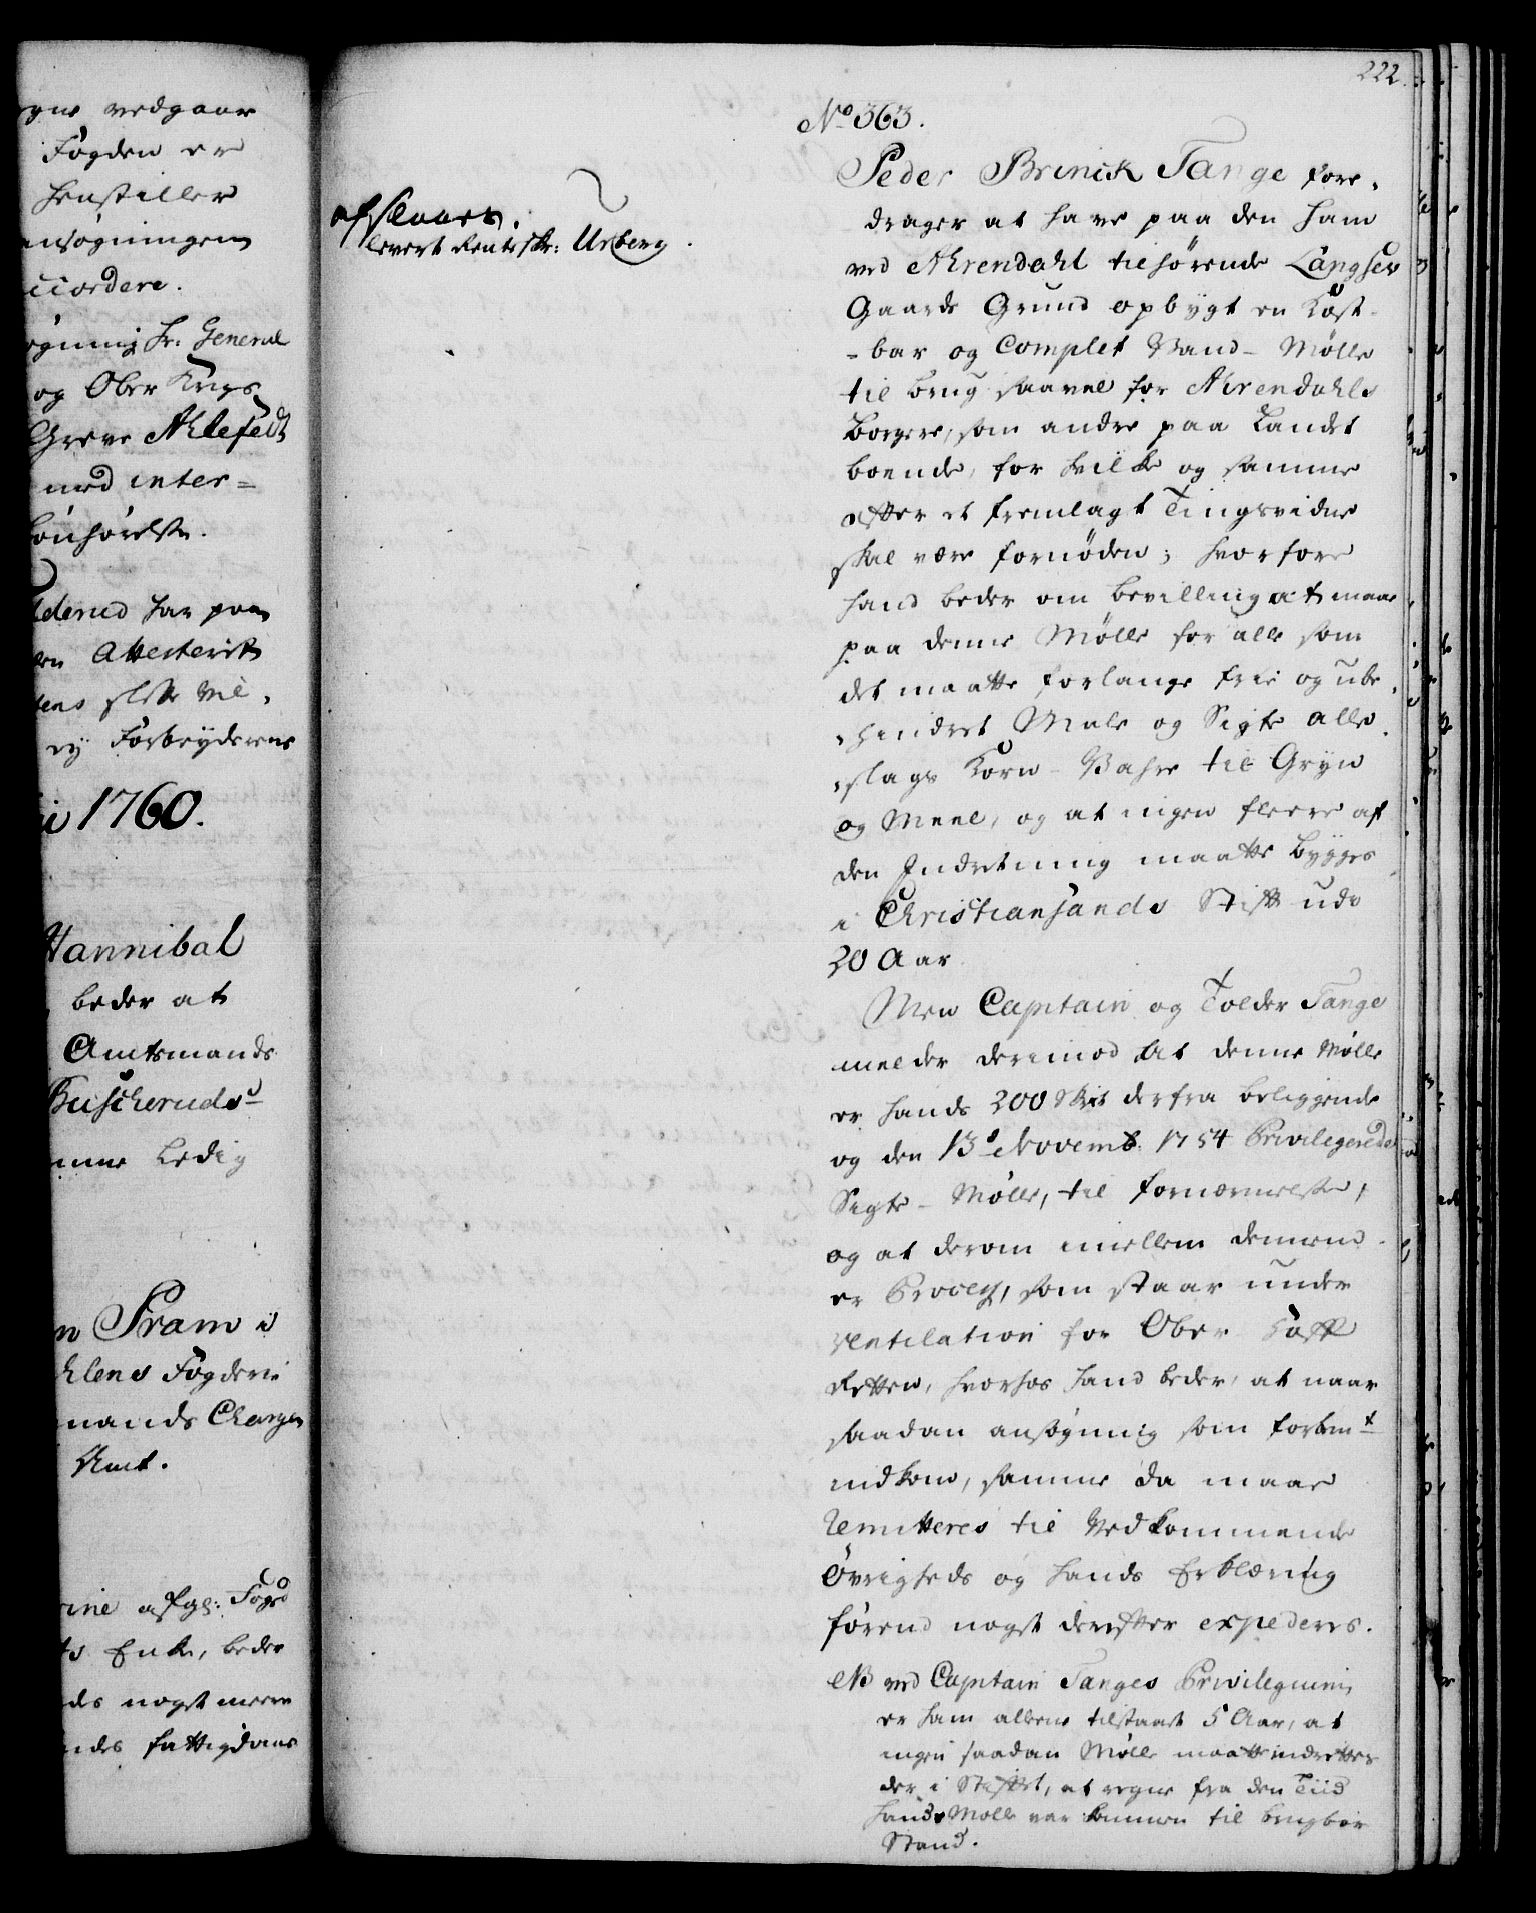 egne vedgaar
Fogden er
henstiller
ansøgningen
accordere.
øgning hr: General
og Ober Krigs
Greve Ahlefeldt
med inter=
bønhørelse.
lderud har paa
den Attesterit
tens slette Vil,
ey Forbryderens
ii 1760.
Hannibal
beder at
Amtmands
Buscheruds
inne ledig
n Pram i
hlens Fogderie
mands Charge
Amt.
rine afgl: Fogd
ts Enke, beder
ds noget meere
ndes fattigdoms
222.
No 363.
afslaaes.
levert Renteskr: Ursberg.
Peder Brinck Tange fore,
drager at have paa den ham
ved Ahrendahl tilhørende Langsev
Gaards Grund opbygt en Kost-
-bar og Complet Vand-Mølle
til brug saavel for Ahrendahls
Borgere, som andre paa Landet
boende, for hvilke og samme
efter et fremlagt Tingsvidne
skal være fornøden; hvorfore
hand beder om bevilling at maae
paa denne Mølle for alle som
det maatte forlange frie og ube,
,hindret Male og Sigte alle
,slags Korn-Vahre til Gryn
og Meel, og at ingen fleere af
den Indretning maatte bygges
i Christiansands Stift udi
20 Aar
Men Captain og Tolder Tange
melder derimod at denne Mølle
er hands 200 Skrit derfra beliggende
og den 13de Novemb: 1754 Privilegerede
Sigte-Mølle, til fornærmelse,
og at derom imellem dennem
er Process, som staar under
Ventilation for Ober Hoff
Retten, hvorhos hand beder, at naar
saadan ansøgning som forbemt
indkom, samme da maae
Remitteres til Vedkommende
Øvrigheds og hands Erklæring
førend noget derefter expederes.
NB ved Captain Tanges Privilegium
er ham allene tilstaaet 5 Aar, at
ingen saadan Mølle maatte indrettes
der i Stiftet, at regne fra den Tiid
hands Mølle var kommen til brugbar
Stand.